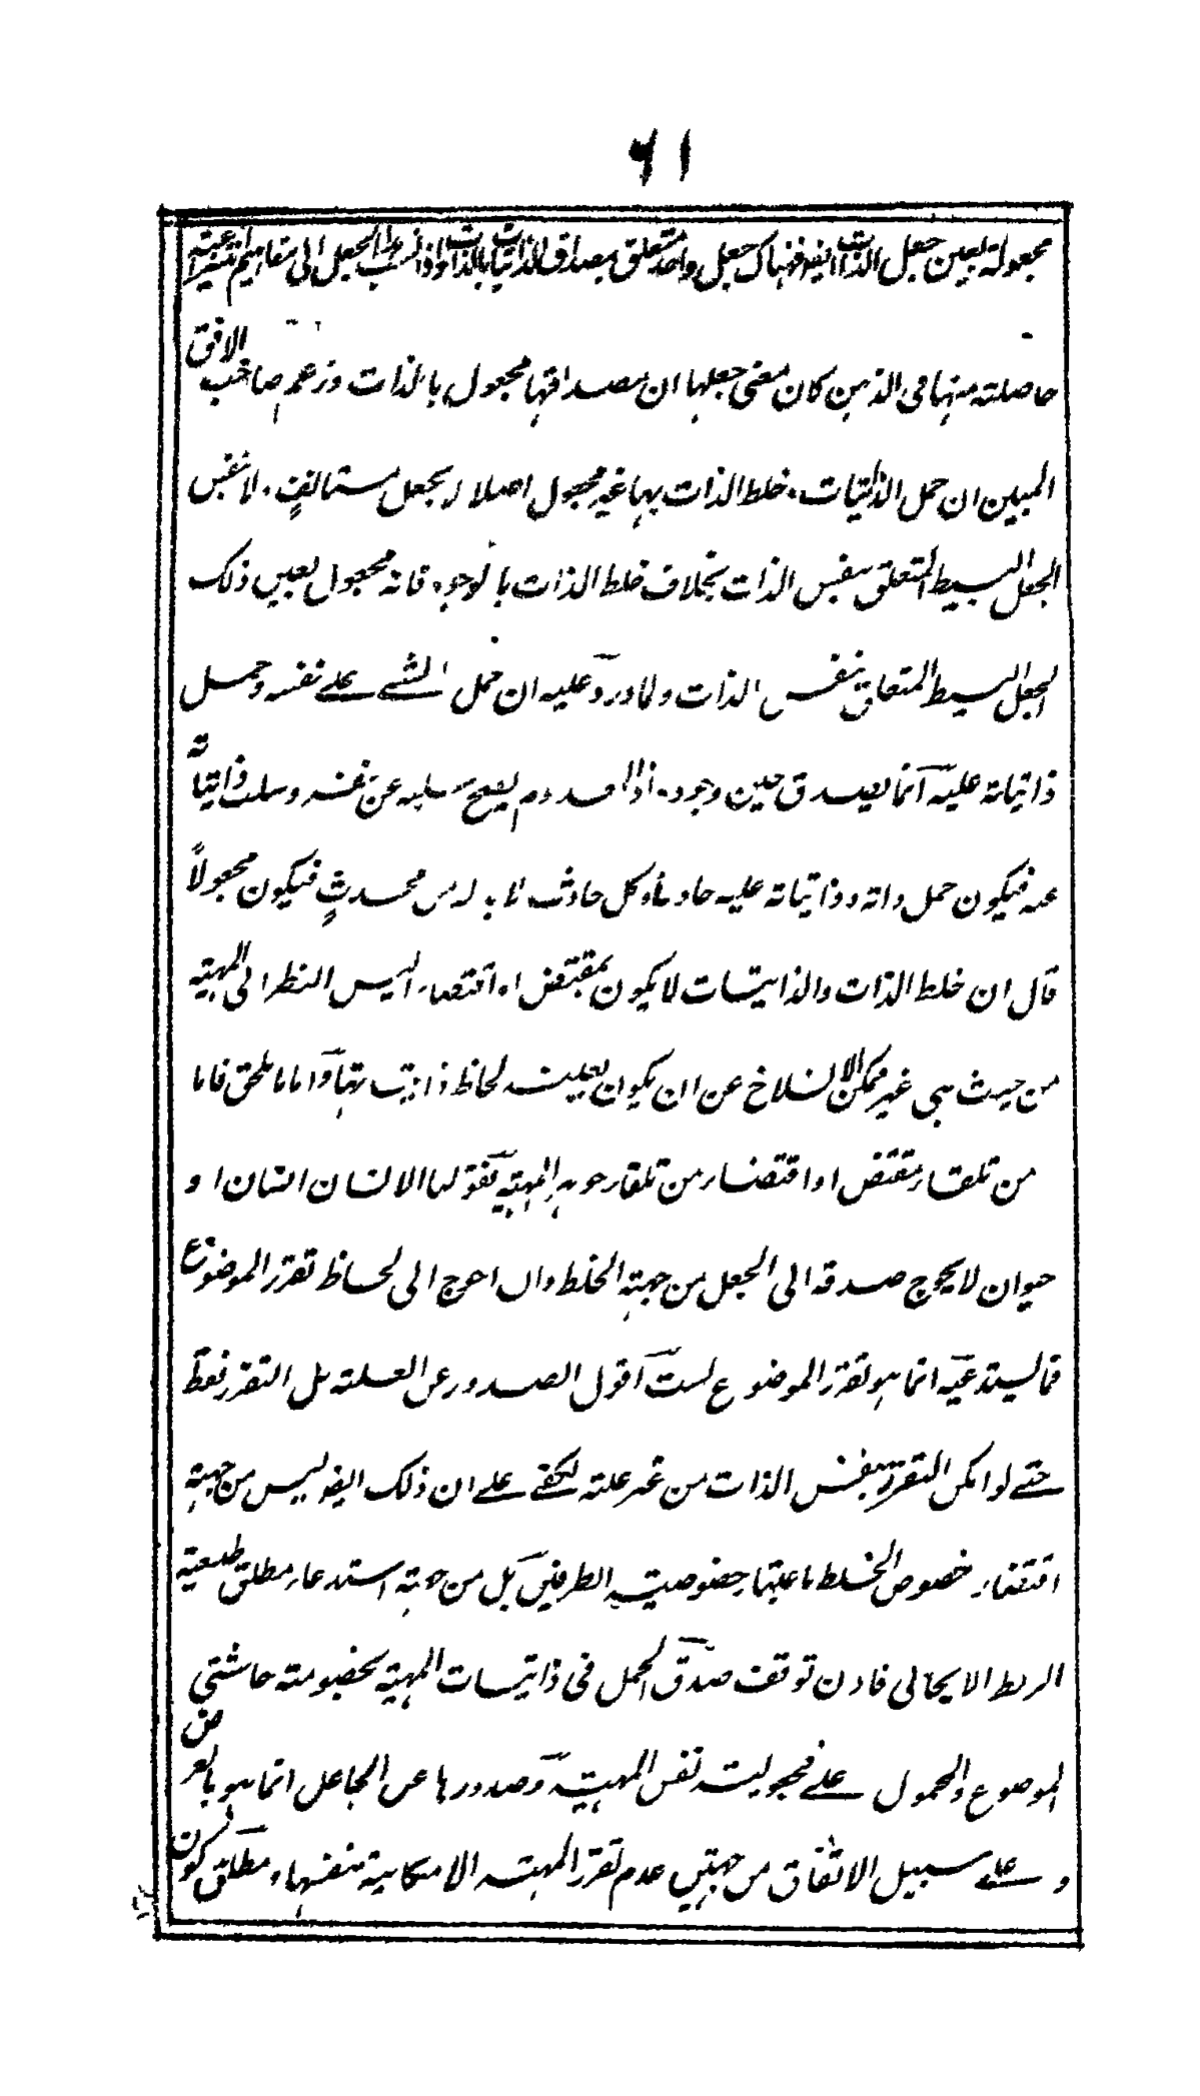 ٦١
مجعولة بعين جعل الذات ايضا فهناك جعل واحد متعلق بمصداق الذاتيات بالذات واذا نسب الجعل الى مفاهيم انتزاعية
حاصلة منها فى الذهن كان معنى جعلها ان مصداقها مجعول بالذات وزعم صاحب الافق
المبين ان حمل الذاتيات وخلط الذات بها غير مجعول اصلا لا بجعل مستانفٍ ولا بنفس
الجعل البسيط المتعلق بنفس الذات بخلاف خلط الذات بالوجود فانه مجعول بعين ذلك
الجعل البسيط المتعلق بنفس الذات ولما ورد عليه ان حمل الشے علے نفسه وحمل
ذاتياته عليه انما يصدق حين وجوده اذ المعدوم يصح سلبه عن نفسه وسلب ذاتياته
عنه فيكون حمل ذاته وذاتياته عليه حادثا وكل حادث لا بد له من محدثٍ فيكون مجعولاً
قال ان خلط الذات والذاتيات لا يكون بمقتض او اقتضاء اليس النظر الى المهية
من حيث هى غير ممكن الانسلاخ عن ان يكون بعينه لحاظ ذاتياتها واما ما يلحق فاما
من تلقاء مقتض او اقتضاء من تلقاء جوهر المهية فقولنا الانسان انسان او
حيوان لا يحوج صدقه الى الجعل من جهة الخلط وان احوج الى لحاظ تقرر الموضوع
فما يستدعيه انما هو تقرر الموضوع لست اقول الصدور عن العلة بل التقرر فقط
حتے لو امكن التقرر بنفس الذات من غير علة لكفے علے ان ذلك ايضا ليس من جهة
اقتضاء خصوص الخلط باعتبار خصوصية الطرفين بل من جهة استدعاء مطلق طبيعة
الربط الايجابى فاذن توقف صدق الحمل فى ذاتيات المهية بخصوصة حاشيتى
الموضوع والمحمول علے مجعولية نفس المهية وصدورها عن الجاعل انما هو بالعرض
و علے سبيل الاتفاق من جهتين عدم تقرر المهية الامكانية بنفسها و مطلق كون